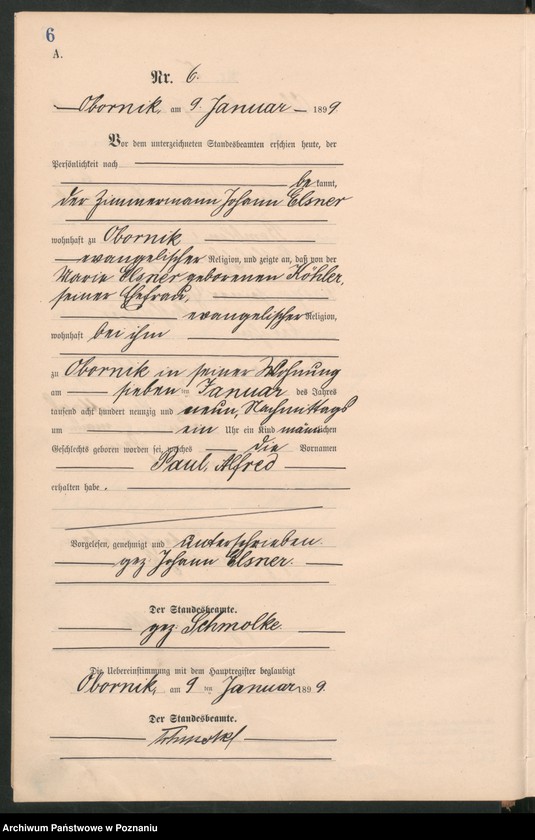 6
A.
Nr. 6.
Obornik, am 9. Januar 1899.
Vor dem unterzeichneten Standesbeamten erschien heute, der
Persönlichkeit nach
bekannt,
der Zimmermann Johann Elsner
wohnhaft zu Obornik
evangelischer Religion, und zeigte an, daß von der
Marie Elsner geborenen Köhler,
seiner Ehefrau,
evangelischer Religion,
wohnhaft bei ihm
zu Obornik in seiner Wohnung
am sieben ten Januar des Jahres
tausend acht hundert neunzig und neun, Nachmittags
um ein Uhr ein Kind männlichen
Geschlechts geboren worden sei, welches die Vornamen
Paul, Alfred
erhalten habe.
Vorgelesen, genehmigt und unterschrieben
gez. Johann Elsner.
Der Standesbeamte.
gez. Schmolke.
Die Uebereinstimmung mit dem Hauptregister beglaubigt
Obornik, am 9 ten Januar 1899.
Der Standesbeamte.
Schmolke
Archiwum Państwowe w Poznaniu